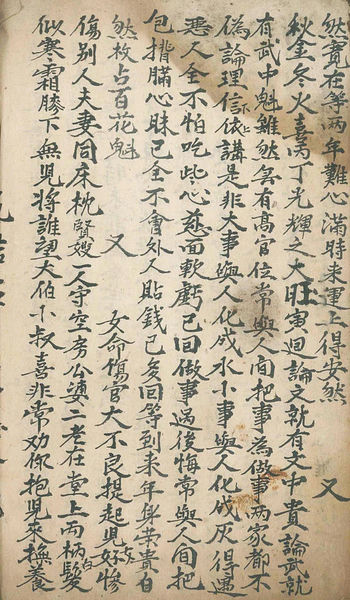 然實在等兩年難心滿時來運上得安然　又
秋金冬火喜丙丁光輝之大旺寅迴論文就有文中貴論武就
有武中魁雖然無有高官位常與人间把事為做事兩家都不
偽論理信依講是非大事與人化成水小事與人化成灰得遇
惡人全不怕吃些心慈面軟虧已回做事過後悔常與人间把
包揹臟心昧已全不會外人貼錢已多回等到來年身荣貴白
然枚占百花魁　又　女命傷官大不良提起兒女好惨
傷别人夫妻同床枕賢嫂一人守空房公婆二老在堂上而柄白髮
似寒霜膝下無児将誰望大伯小叔喜非常劝你抱児來撫养